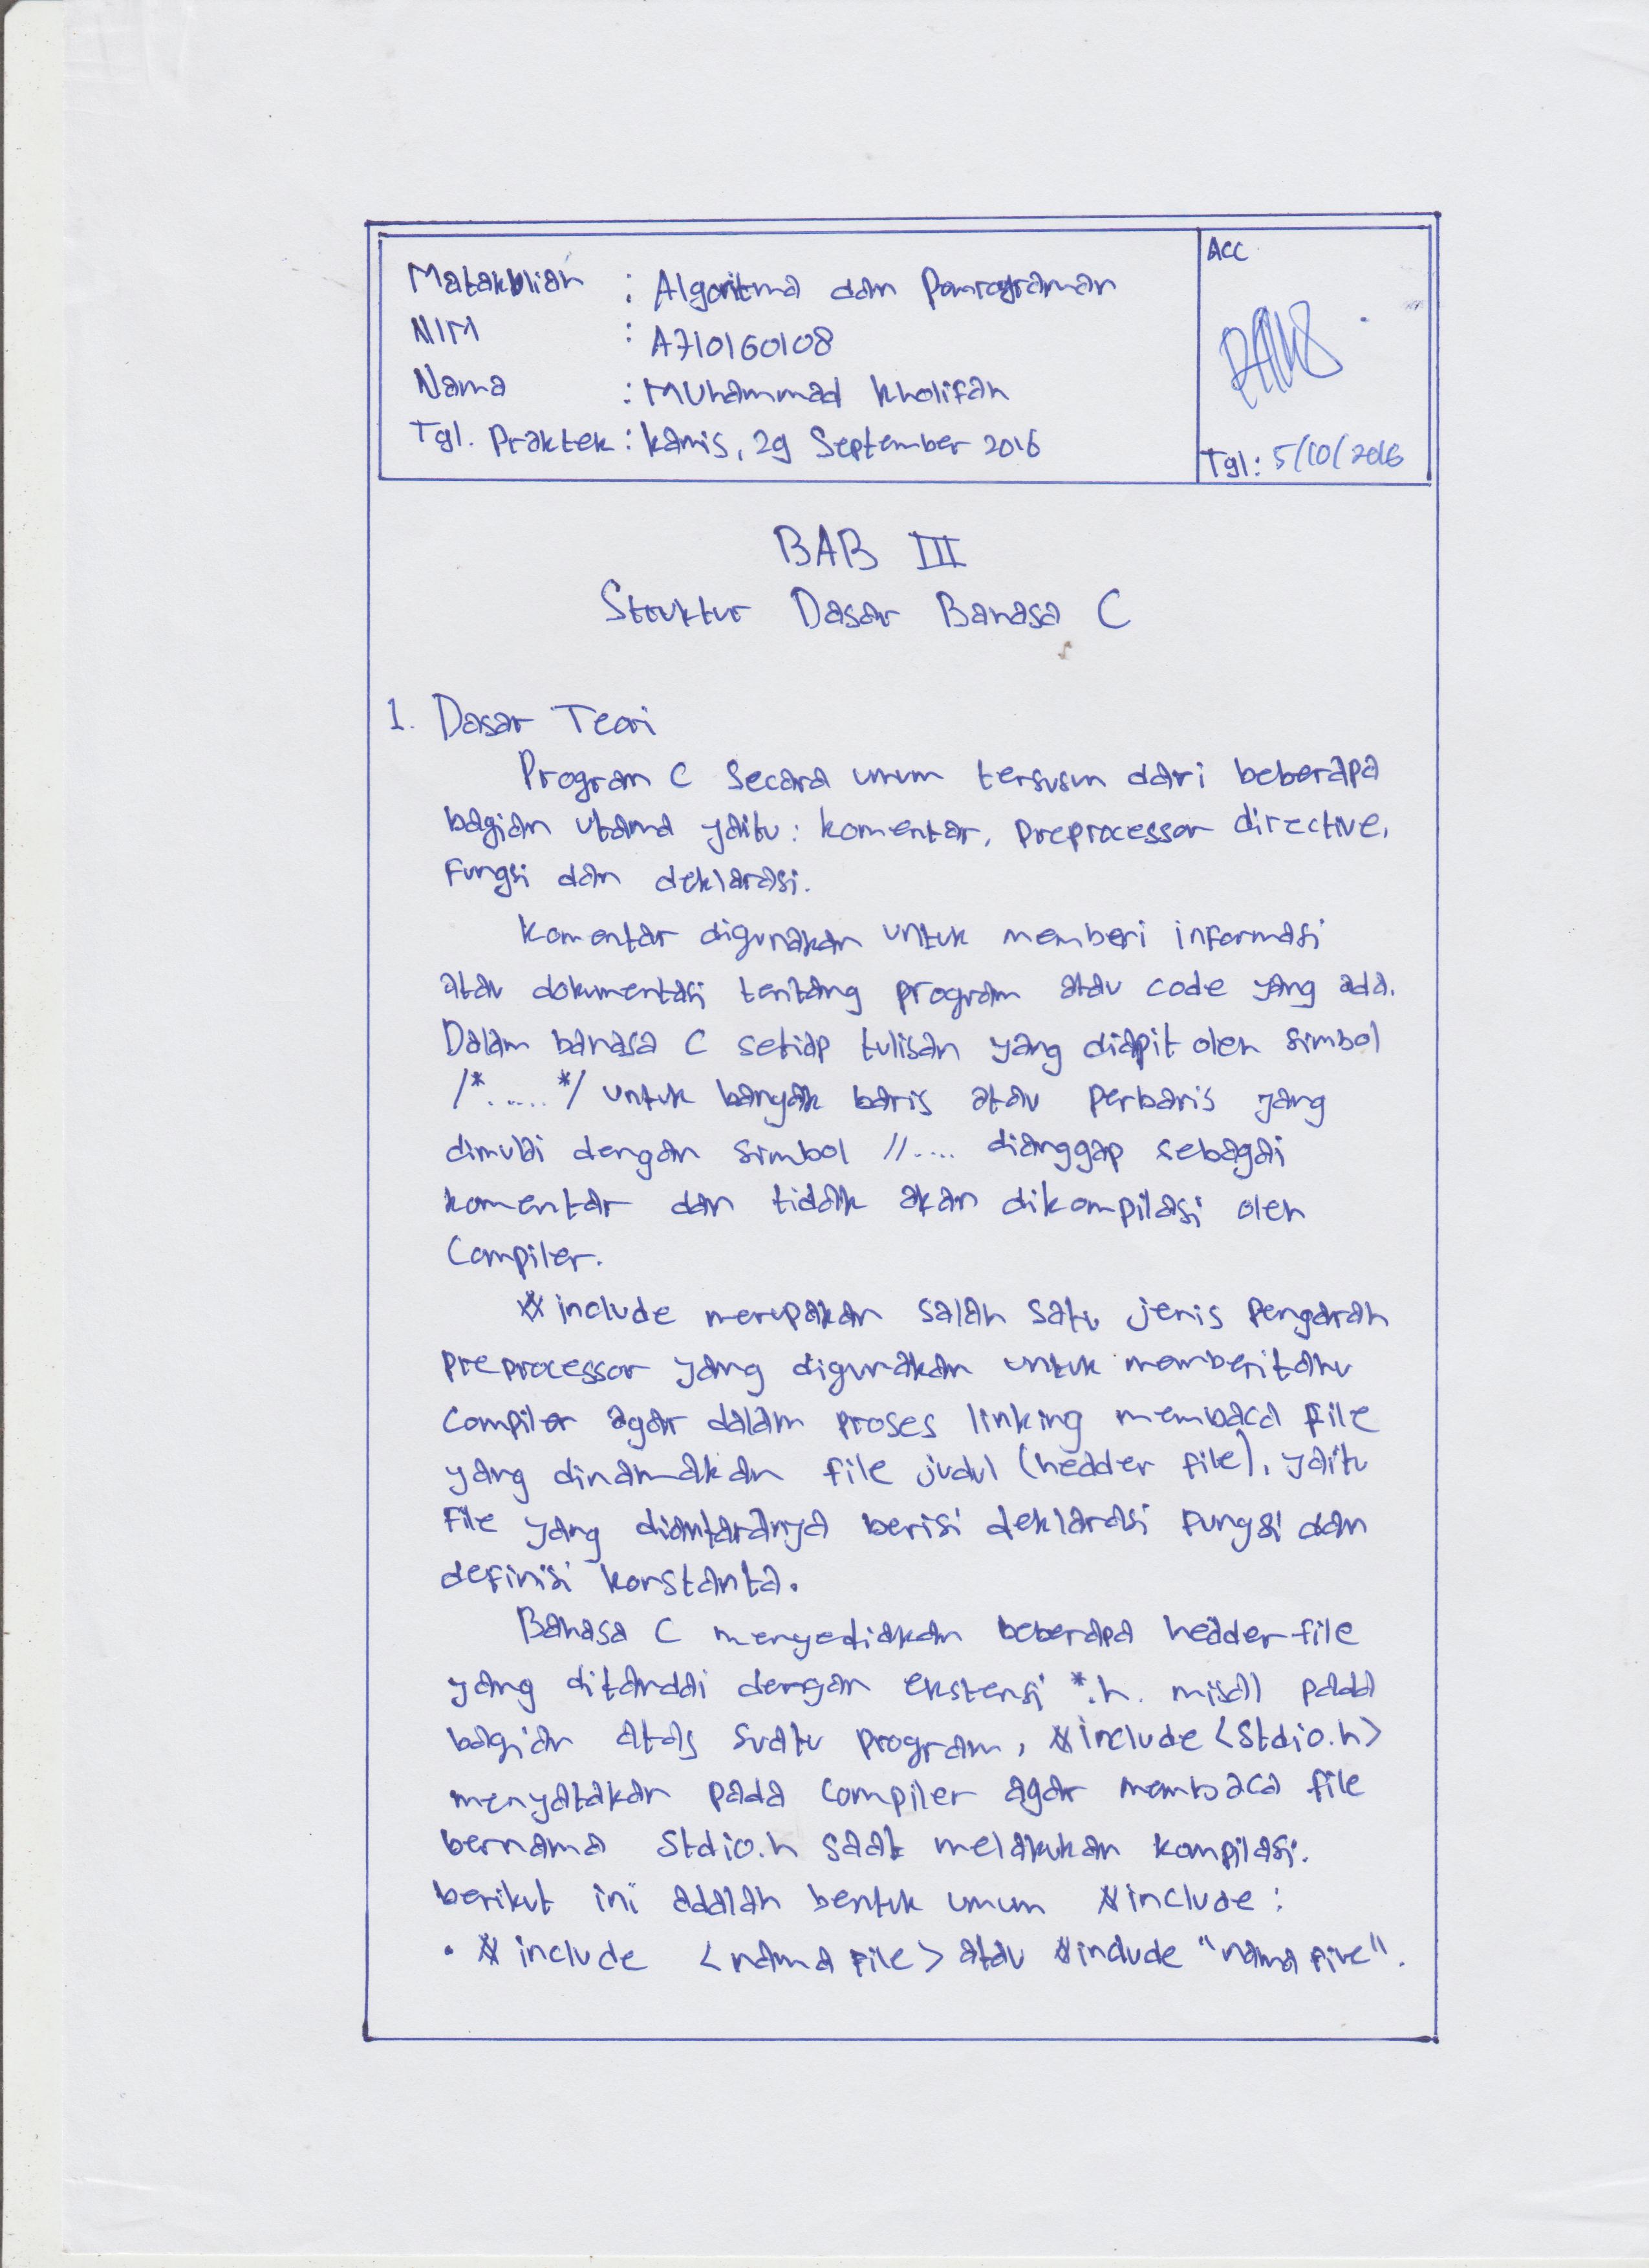 Matakuliah : Algoritma dan Pemrograman
NIM : A710160108
Nama : Muhammad Kholifah
Tgl. Praktek : Kamis, 29 September 2016
ACC
Tgl: 5/10/2016
BAB III
Struktur Dasar Bahasa C
1. Dasar Teori
Program C Secara umum tersusun dari beberapa
bagian utama yaitu : komentar, preprocessor directive,
Fungsi dan deklarasi.
Komentar digunakan untuk memberi informasi
atau dokumentasi tentang program atau code yang ada.
Dalam bahasa C setiap tulisan yang diapit oleh simbol
/*.....*/ untuk banyak baris atau perbaris yang
dimulai dengan simbol //.... dianggap sebagai
komentar dan tidak akan dikompilasi oleh
Compiler.
#include merupakan salah satu jenis pengarah
preprocessor yang digunakan untuk memberitahu
Compiler agar dalam proses linking membaca file
yang dinamakan file judul (headder file), yaitu
file yang diantaranya berisi deklarasi fungsi dan
definisi konstanta.
Bahasa C menyediakan beberapa headder file
yang ditandai dengan ekstensi *.h. misal pada
bagian atas suatu program, #include <stdio.h>
menyatakan pada compiler agar membaca file
bernama stdio.h saat melakukan kompilasi.
berikut ini adalah bentuk umum #include :
• # include <nama file> atau #include "nama file".